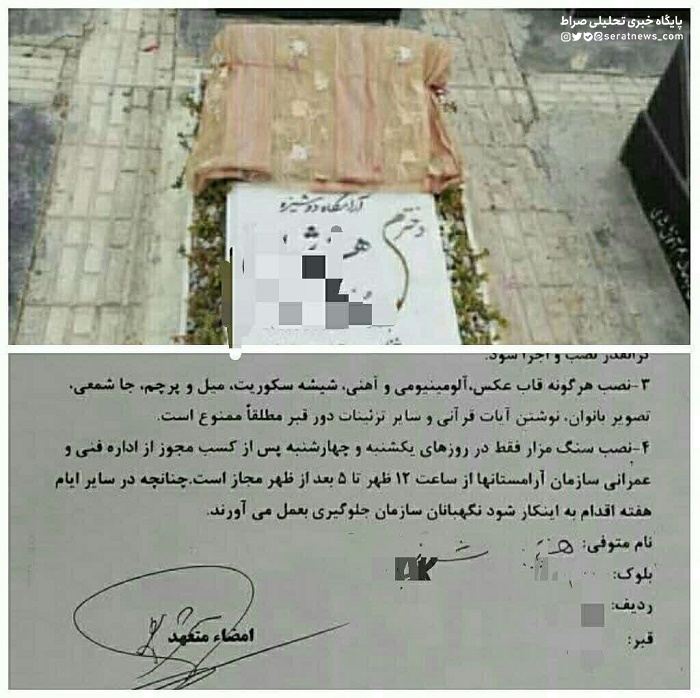 پایگاه خبری تحلیلی صراط
@seratnews_com
آرامگاه دوشیزه
دخترم
گرانقدر نصب و اجرا شود.
۳-نصب هرگونه قاب عکس،آلومینیومی و آهنی، شیشه سکوریت، میل و پرچم، جا شمعی،
تصویر بانوان، نوشتن آیات قرآنی و سایر تزئینات دور قبر مطلقاً ممنوع است.
۴-نصب سنگ مزار فقط در روزهای یکشنبه و چهارشنبه پس از کسب مجوز از اداره فنی و
عمرانی سازمان آرامستانها از ساعت ۱۲ ظهر تا ۵ بعد از ظهر مجاز است.چنانچه در سایر ایام
هفته اقدام به اینکار شود نگهبانان سازمان جلوگیری بعمل می آورند.
نام متوفی:
بلوک:
ردیف:
قبر:
امضاء متعهد